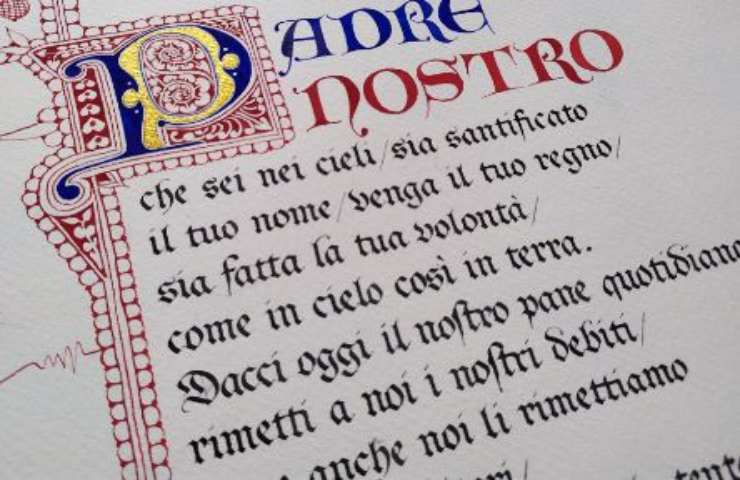 PADRE
NOSTRO
che sei nei cieli/sia santificato
il tuo nome/venga il tuo regno/
sia fatta la tua volontà/
come in cielo così in terra.
Dacci oggi il noſtro pane quotidiano
rimetti a noi i noſtri debiti/
anche noi li rimettiamo